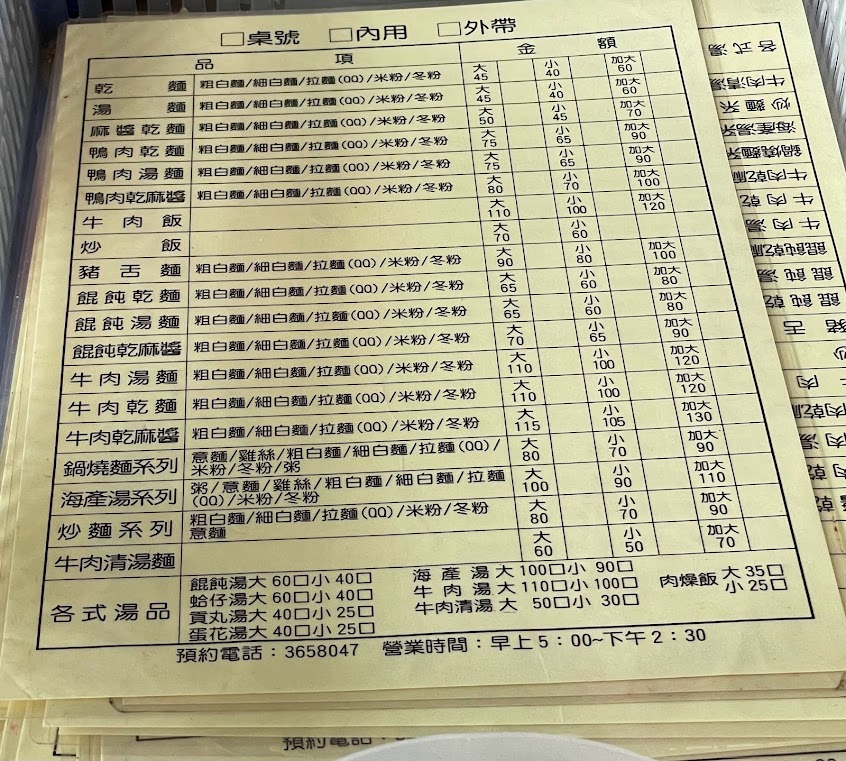 □桌號 □內用 □外帶
品項 金額
乾麵 粗白麵/細白麵/拉麵(QQ)/米粉/冬粉 大45 小40 加大60
湯麵 粗白麵/細白麵/拉麵(QQ)/米粉/冬粉 大45 小40 加大60
麻醬乾麵 粗白麵/細白麵/拉麵(QQ)/米粉/冬粉 大50 小45 加大70
鴨肉乾麵 粗白麵/細白麵/拉麵(QQ)/米粉/冬粉 大75 小65 加大90
鴨肉湯麵 粗白麵/細白麵/拉麵(QQ)/米粉/冬粉 大75 小65 加大90
鴨肉乾麻醬 粗白麵/細白麵/拉麵(QQ)/米粉/冬粉 大80 小70 加大100
牛肉飯 大110 小100 加大120
炒飯 大70 小60
豬舌麵 粗白麵/細白麵/拉麵(QQ)/米粉/冬粉 大90 小80 加大100
餛飩乾麵 粗白麵/細白麵/拉麵(QQ)/米粉/冬粉 大65 小60 加大80
餛飩湯麵 粗白麵/細白麵/拉麵(QQ)/米粉/冬粉 大65 小60 加大80
餛飩乾麻醬 粗白麵/細白麵/拉麵(QQ)/米粉/冬粉 大70 小65 加大90
牛肉湯麵 粗白麵/細白麵/拉麵(QQ)/米粉/冬粉 大110 小100 加大120
牛肉乾麵 粗白麵/細白麵/拉麵(QQ)/米粉/冬粉 大110 小100 加大120
牛肉乾麻醬 粗白麵/細白麵/拉麵(QQ)/米粉/冬粉 大115 小105 加大130
鍋燒麵系列 意麵/雞絲/粗白麵/細白麵/拉麵(QQ)/米粉/冬粉/粥 大80 小70 加大90
海產湯系列 粥/意麵/雞絲/粗白麵/細白麵/拉麵(QQ)/米粉/冬粉 大100 小90 加大110
炒麵系列 粗白麵/細白麵/拉麵(QQ)/米粉/冬粉 意麵 大80 小70 加大90
牛肉清湯麵 大60 小50 加大70
各式湯品
餛飩湯大 60□小 40□ 海產湯大 100□小 90□ 肉燥飯 大 35□
蛤仔湯大 60□小 40□ 牛肉湯大 110□小 100□ 小 25□
貢丸湯大 40□小 25□ 牛肉清湯大 50□小 30□
蛋花湯大 40□小 25□
預約電話：3658047 營業時間：早上 5：00~下午 2：30
預約電話：